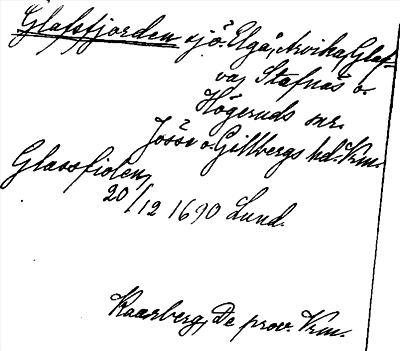 Glafsfjorden sjö. Elgå, Arvika, Glaf-
va, Stafnäs o.
Högeruds snr.
Jösse o. Gillbergs hd. Vrm.
Glassfiolen,
20/12 1690 Lund.
Kaarberg, De prov. Vrm.